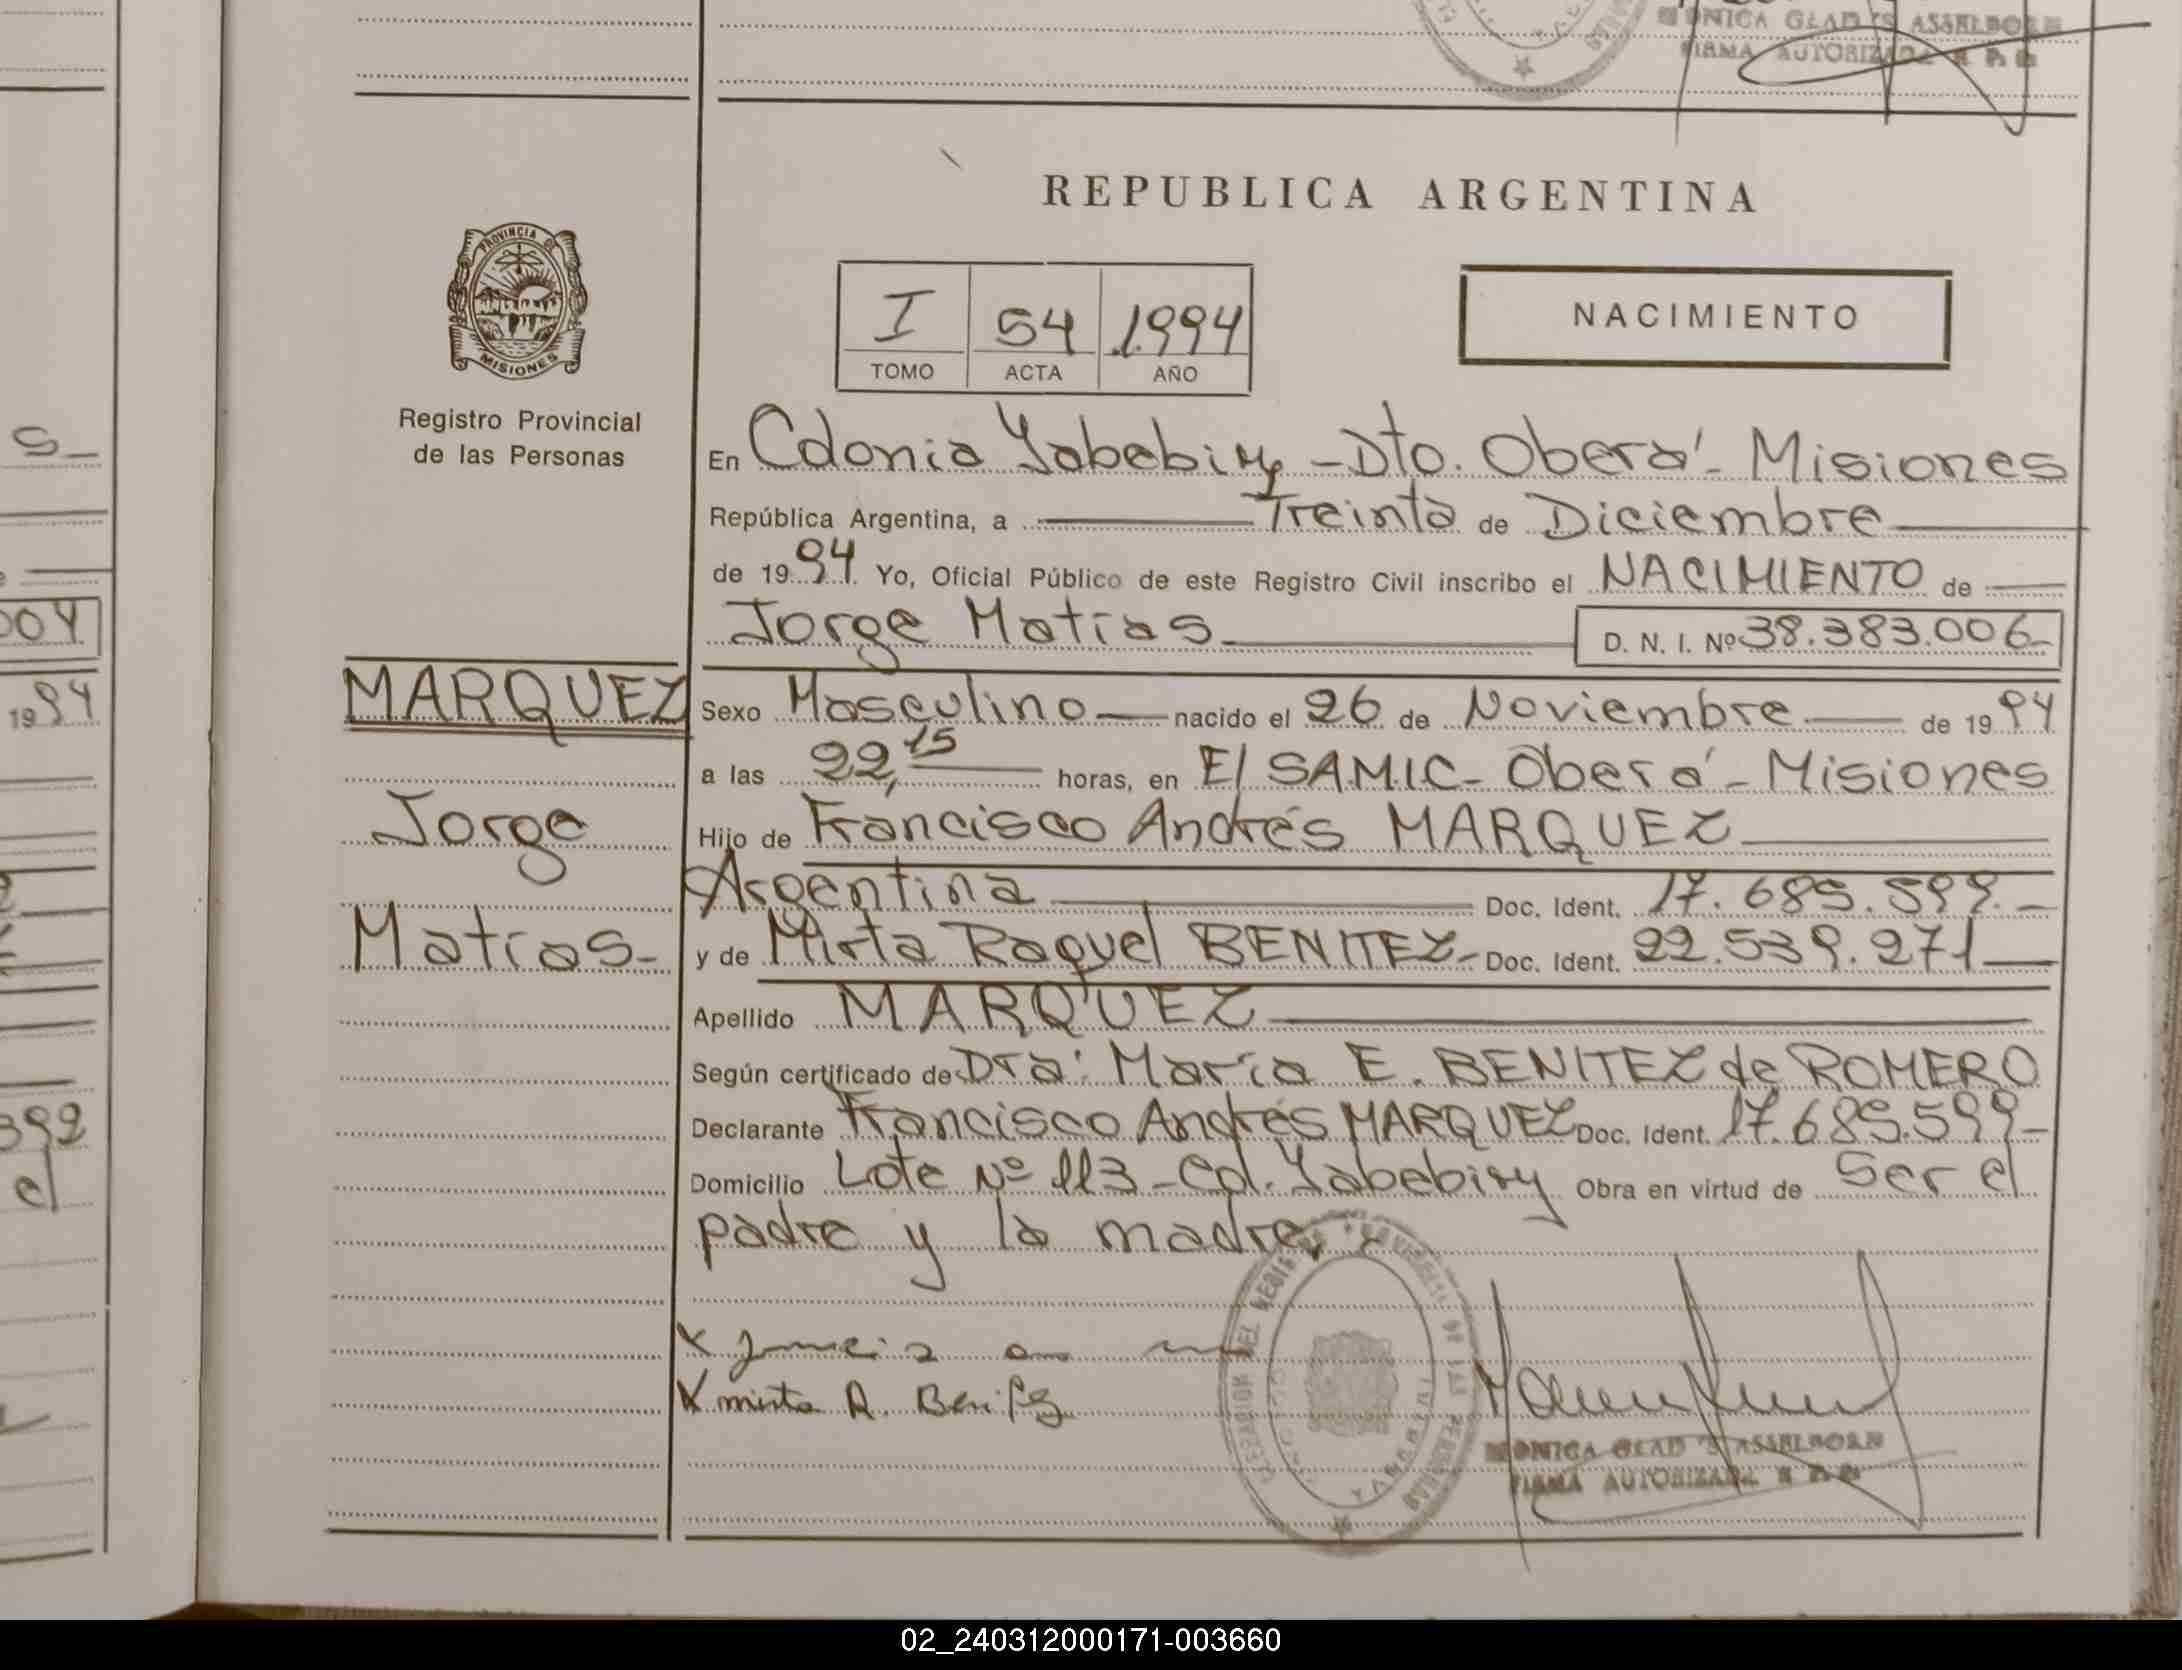 MONICA GLADYS ASSELBORN
FIRMA AUTORIZADA R P P
REPUBLICA ARGENTINA
PROVINCIA DE
MISIONES
I 54 1994
TOMO ACTA AÑO
NACIMIENTO
Registro Provincial
de las Personas
S_
004
1994
392
el
En Colonia Yabebiry - Dto. Oberá - Misiones
República Argentina, a Treinta de Diciembre
de 1994. Yo, Oficial Público de este Registro Civil inscribo el NACIMIENTO de
Jorge Matías D. N. I. Nº 38.383.006-
MARQUEZ
Jorge
Matías-
Sexo Masculino nacido el 26 de Noviembre de 1994
a las 22,15 horas, en El SAMIC - Oberá - Misiones
Hijo de Francisco Andrés MARQUEZ
Argentina Doc. Ident. 17.685.599.-
y de Mirta Raquel BENITEZ- Doc. Ident. 22.539.271
Apellido MARQUEZ
Según certificado de Dra: María E. BENITEZ de ROMERO
Declarante Francisco Andrés MARQUEZ Doc. Ident. 17.685.599-
Domicilio Lote Nº 113 - Col. Yabebiry Obra en virtud de Ser el
padre y la madre
X
X mirta R. Benitez
MONICA GLADYS ASSELBORN
FIRMA AUTORIZADA R P P
02_240312000171-003660